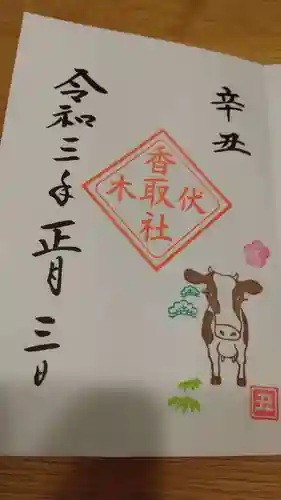 辛丑
伏木
香取社
令和三年正月三日
丑